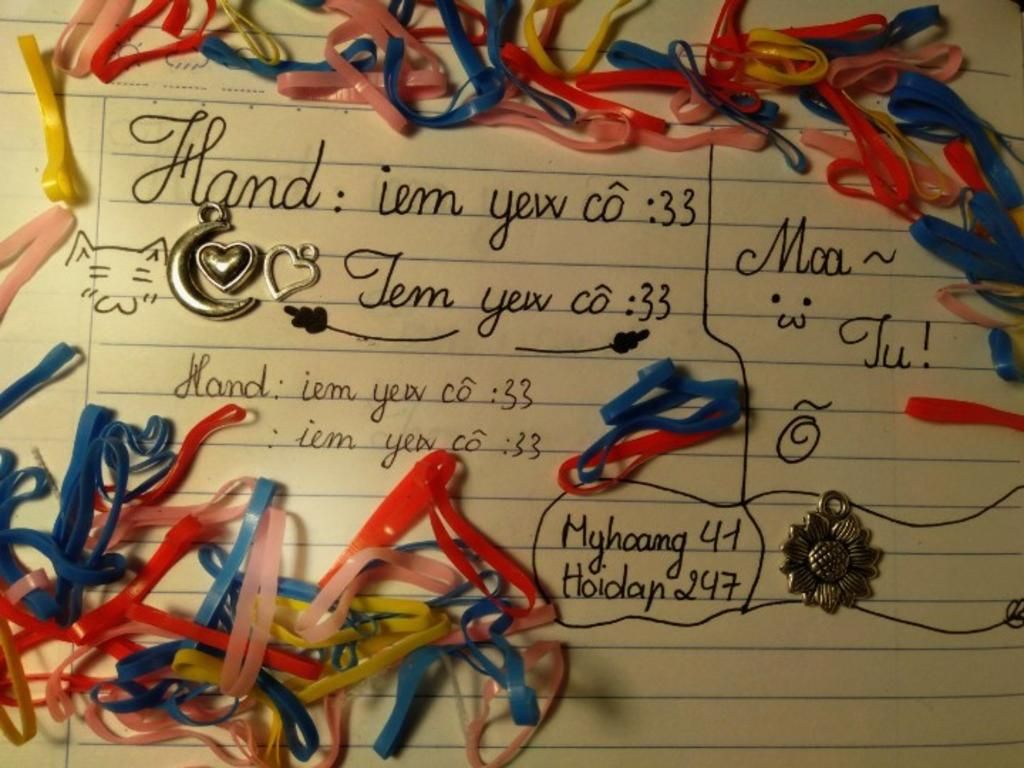 Hand: iem yew cô :33
Iem yew cô :33
Hand: iem yew cô :33
: iem yew cô :33
Moa ~
Tu!
Õ
Myhoang 41
Hoidap 247